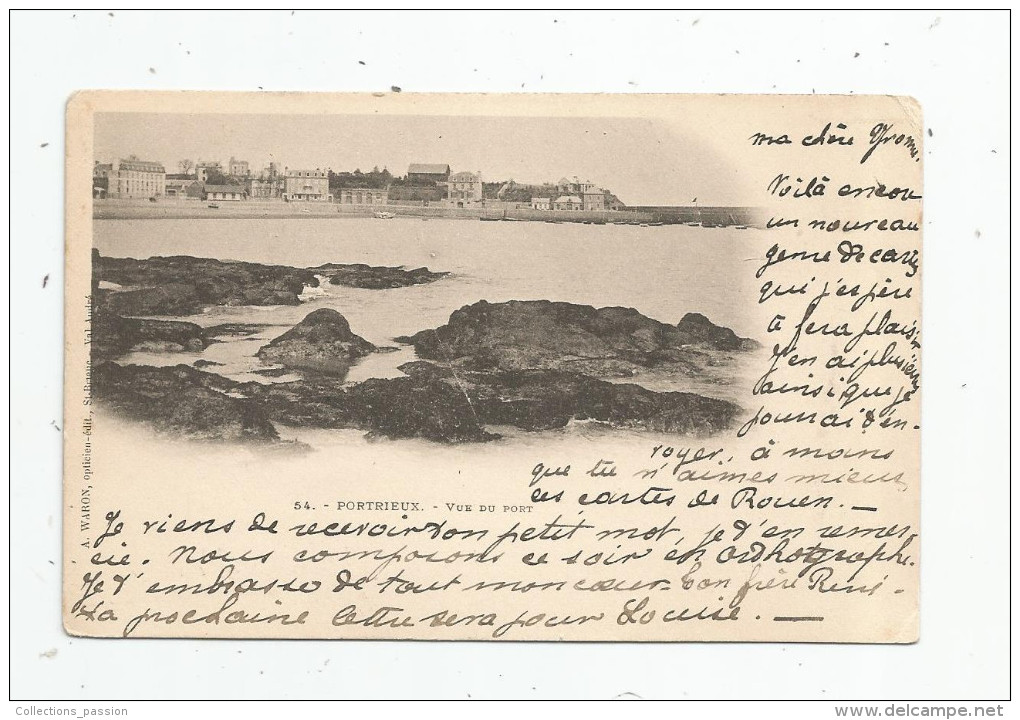 ma chère Yvonne.
Voilà encou
un nouveau
genre de cartes
qui j'espère
à fera plaisir
J'en ai plusieurs
ainsi que je
pourrai t'en.
royer, à moins
que tu n'aimes mieux
des cartes de Rouen. —
54. - PORTRIEUX. - VUE DU PORT
Je viens de recevoir ton petit mot, je t'en remer
cie. Nous composons ce soir en orthographe.
Je t'embrasse de tout mon cœur. Ton frère René.
La prochaine lettre sera pour Louise. —
A. WARON, opticien-édit., St-Brieuc - Val-André
Collections_passion
www.delcampe.net